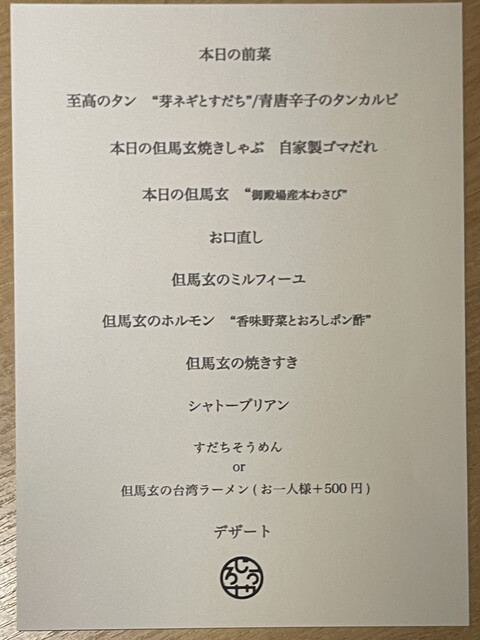 本日の前菜
至高のタン “芽ネギとすだち”/青唐辛子のタンカルビ
本日の但馬玄焼きしゃぶ 自家製ゴマだれ
本日の但馬玄 “御殿場産本わさび”
お口直し
但馬玄のミルフィーユ
但馬玄のホルモン “香味野菜とおろしポン酢”
但馬玄の焼きすき
シャトーブリアン
すだちそうめん
or
但馬玄の台湾ラーメン(お一人様+500円)
デザート